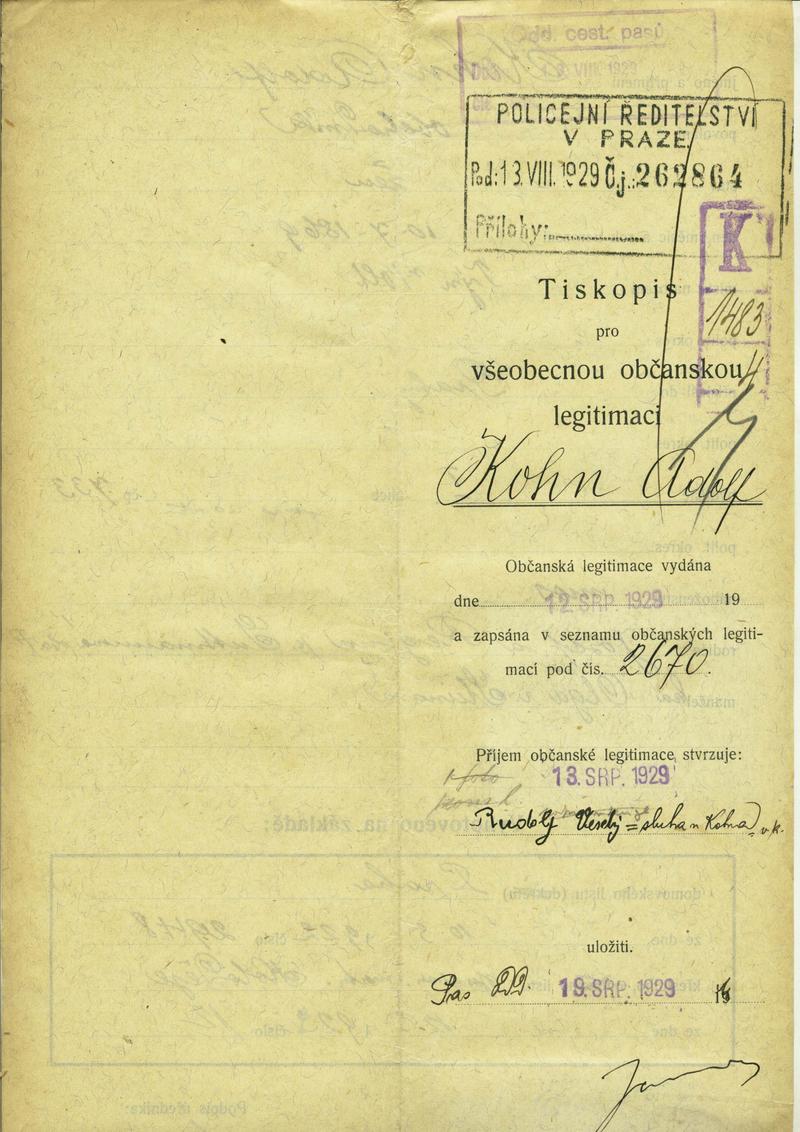 Odd. cest. pasů
VIII. 1929
POLICEJNÍ ŘEDITELSTVÍ
V PRAZE
Pod: 13. VIII. 1929 Čj.: 262864
Přílohy:
K
1483
Tiskopis
pro
všeobecnou občanskou
legitimaci
Kohn Adolf
Občanská legitimace vydána
dne 12. SRP. 1929 19
a zapsána v seznamu občanských legiti-
mací pod čís. 2670.
Příjem občanské legitimace stvrzuje:
13. SRP. 1929
Rudolf Veselý = sluha u Kohna
uložiti.
19. SRP. 1929